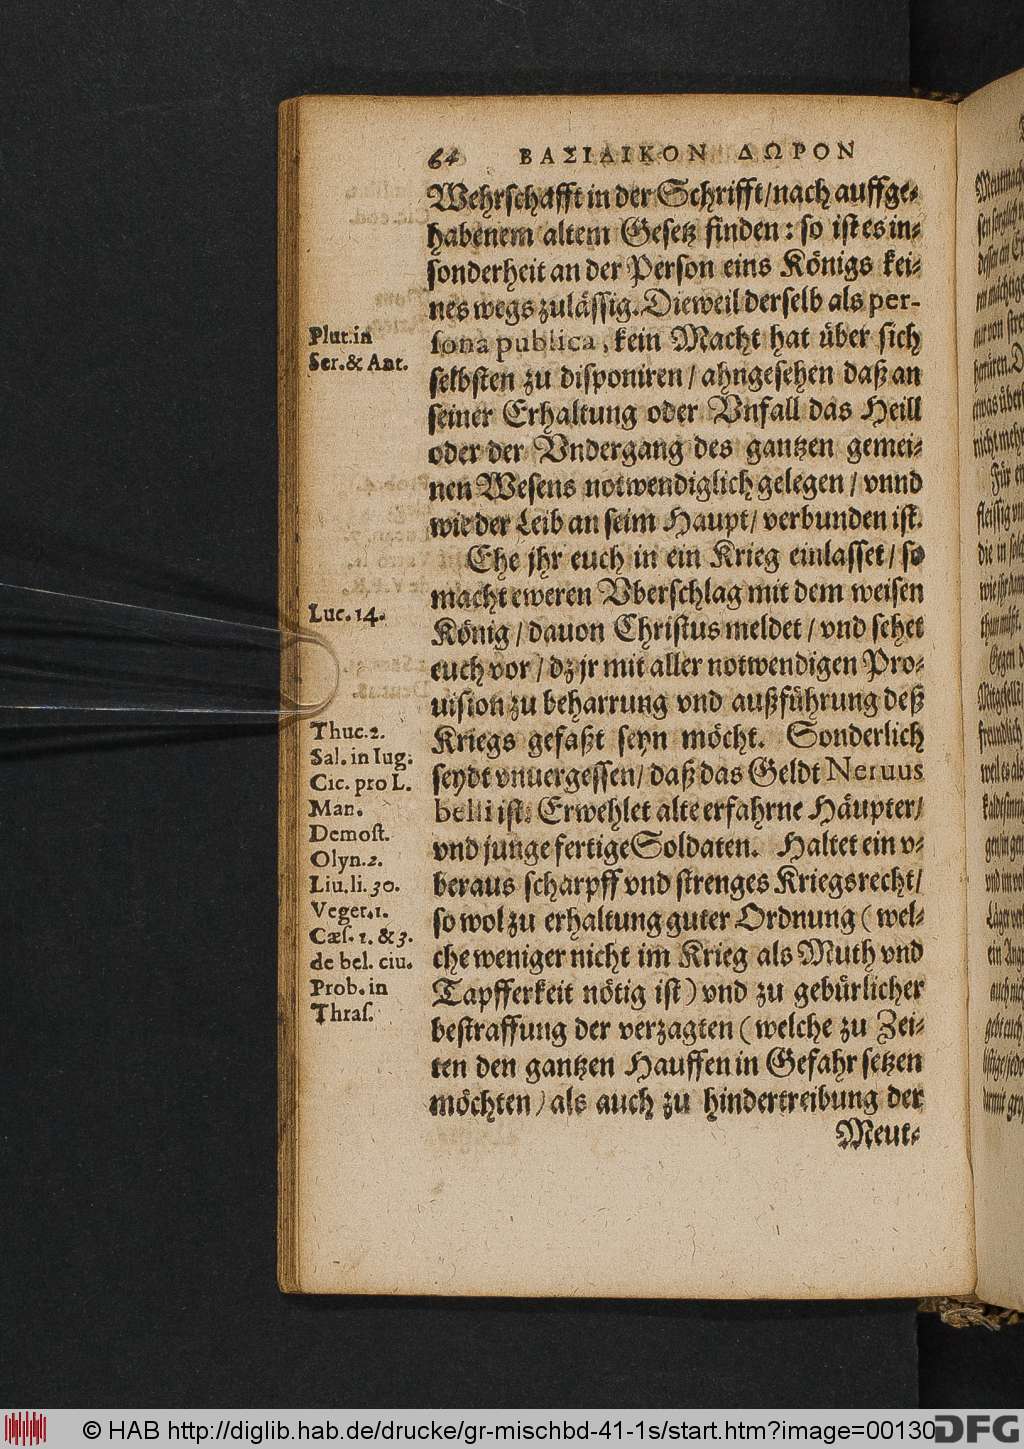 64 ΒΑΣΙΛΙΚΟΝ ΔΩΡΟΝ
Wehrschafft in der Schrifft/nach auffge-
habenem altem Gesetz finden: so ist es in-
sonderheit an der Person eins Königs kei-
nes wegs zulässig. Dieweil derselb als per-
sona publica, kein Macht hat über sich
selbsten zu disponiren/ahngesehen daß an
seiner Erhaltung oder Vnfall das Heill
oder der Vndergang des gantzen gemei-
nen Wesens notwendiglich gelegen/vnnd
wie der Leib an seim Haupt/verbunden ist.
Ehe jhr euch in ein Krieg einlasset/so
macht eweren Vberschlag mit dem weisen
König/dauon Christus meldet/vnd sehet
euch vor/dz jr mit aller notwendigen Pro-
uision zu beharrung vnd außführung deß
Kriegs gefaßt seyn möcht. Sonderlich
seydt vnuergessen/daß das Geldt Neruus
belli ist. Erwehlet alte erfahrne Häupter/
vnd junge fertige Soldaten. Haltet ein v-
beraus scharpff vnd strenges Kriegsrecht/
so wol zu erhaltung guter Ordnung (wel-
che weniger nicht im Krieg als Muth vnd
Tapfferkeit nötig ist) vnd zu gebürlicher
bestraffung der verzagten (welche zu Zei-
ten den gantzen Hauffen in Gefahr setzen
möchten) als auch zu hindertreibung der
Meut-
Plut. in
Ser. & Ant.
Luc. 14.
Thuc. 2.
Sal. in Iug.
Cic. pro L.
Man.
Demost.
Olyn. 2.
Liu. li. 30.
Veget. 1.
Cæs. 1. & 3.
de bel. ciu.
Prob. in
Thras.
© HAB http://diglib.hab.de/drucke/gr-mischbd-41-1s/start.htm?image=00130
DFG